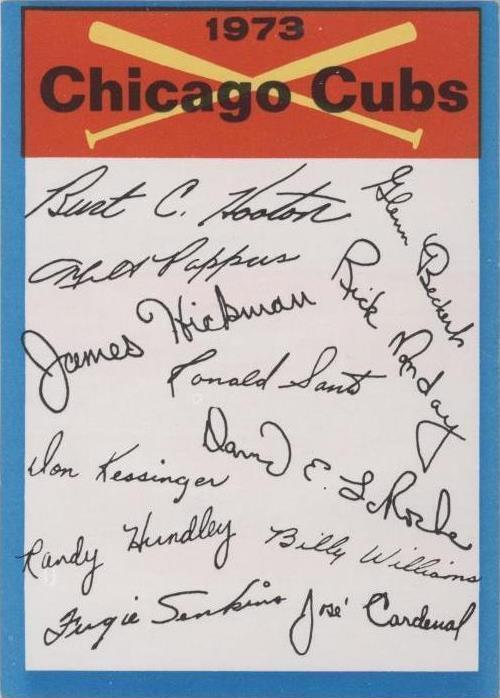 1973
Chicago Cubs
Burt C. Hooton
Glenn Beckert
Milt Pappas
Rick Monday
James Hickman
Ronald Santo
David E. LaRoche
Don Kessinger
Randy Hundley
Billy Williams
Fergie Jenkins
José Cardenal